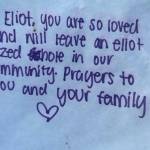 Eliot, you are so loved
nd will leave an eliot
zed hole in our
mmunity. Prayers to
ou and your family